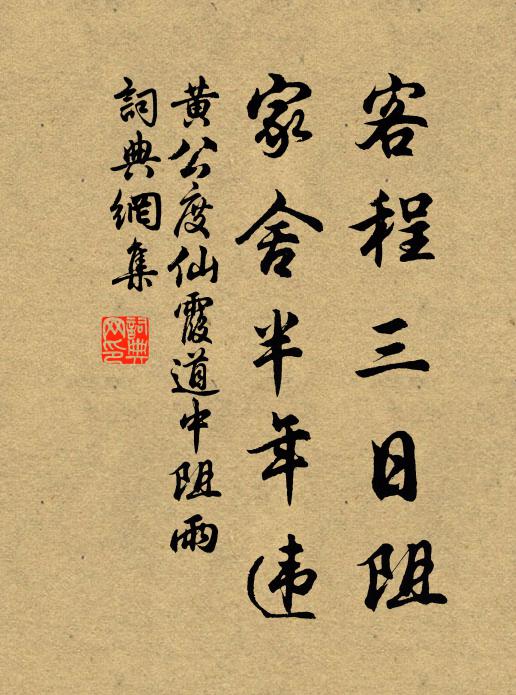 客程三日阻
家舍半年违
黃公度仙霞道中阻雨
詞典網集
詞典网印